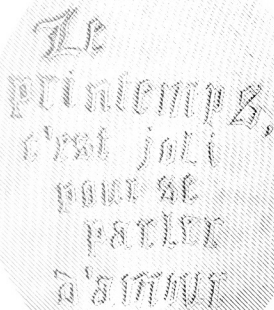 Le
printemps,
c'est joli
pour se
parler
d'amour